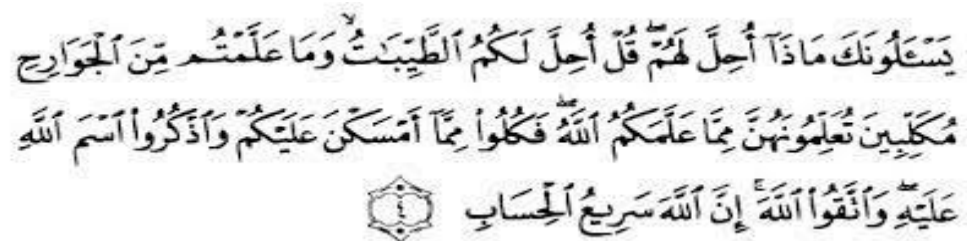 يَسْـَٔلُونَكَ مَاذَآ أُحِلَّ لَهُمْۖ قُلْ أُحِلَّ لَكُمُ ٱلطَّيِّبَـٰتُۙ وَمَا عَلَّمْتُم مِّنَ ٱلْجَوَارِحِ
مُكَلِّبِينَ تُعَلِّمُونَهُنَّ مِمَّا عَلَّمَكُمُ ٱللَّهُۖ فَكُلُوا۟ مِمَّآ أَمْسَكْنَ عَلَيْكُمْ وَٱذْكُرُوا۟ ٱسْمَ ٱللَّهِ
عَلَيْهِۖ وَٱتَّقُوا۟ ٱللَّهَۚ إِنَّ ٱللَّهَ سَرِيعُ ٱلْحِسَابِ ٤